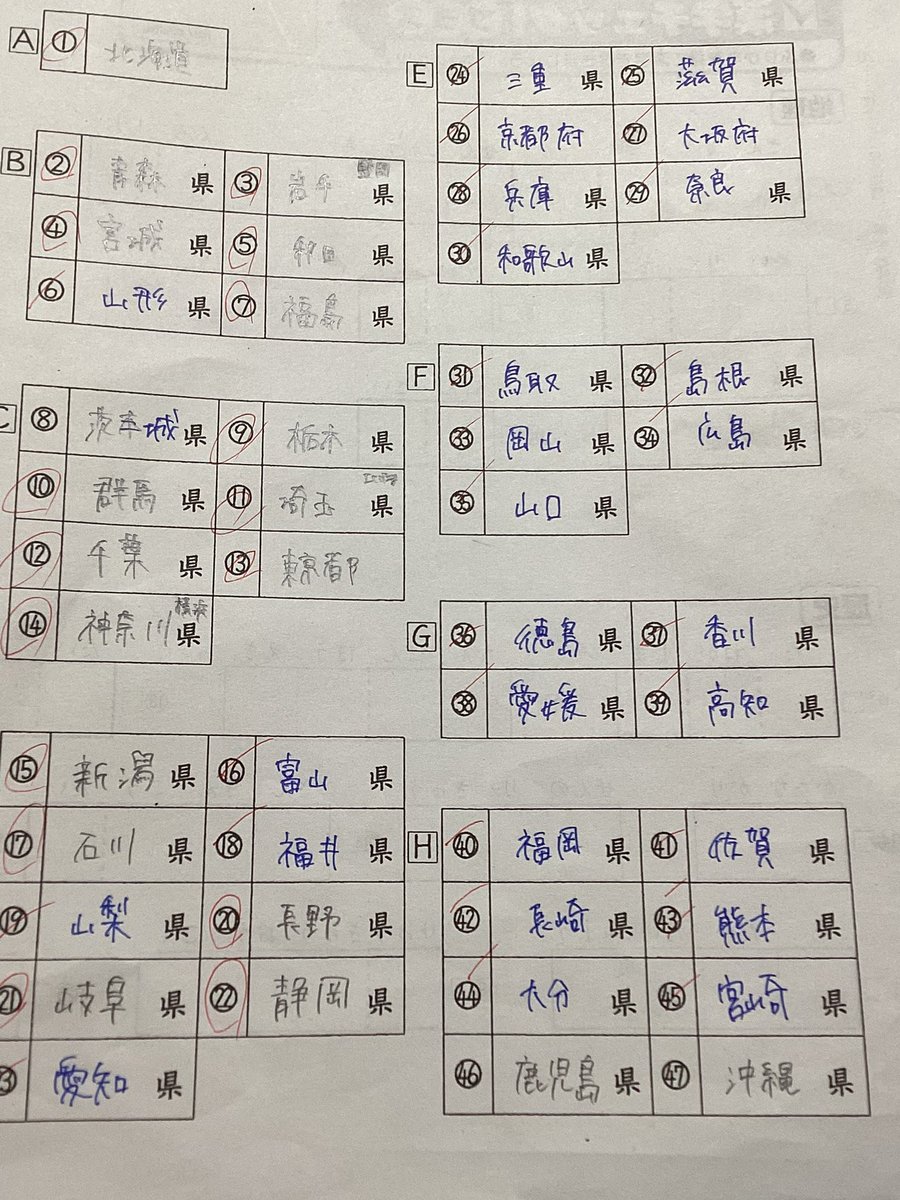 A ① 北海道
B ② 青森 県 ③ 岩手 県
④ 宮城 県 ⑤ 秋田 県
⑥ 山形 県 ⑦ 福島 県
C ⑧ 茨城 県 ⑨ 栃木 県
⑩ 群馬 県 ⑪ 埼玉 県
⑫ 千葉 県 ⑬ 東京都
横浜
⑭ 神奈川 県
⑮ 新潟 県 ⑯ 富山 県
⑰ 石川 県 ⑱ 福井 県
⑲ 山梨 県 ⑳ 長野 県
㉑ 岐阜 県 ㉒ 静岡 県
㉓ 愛知 県
E ㉔ 三重 県 ㉕ 滋賀 県
㉖ 京都府 ㉗ 大阪府
㉘ 兵庫 県 ㉙ 奈良 県
㉚ 和歌山 県
F ㉛ 鳥取 県 ㉜ 島根 県
㉝ 岡山 県 ㉞ 広島 県
㉟ 山口 県
G ㊱ 徳島 県 ㊲ 香川 県
㊳ 愛媛 県 ㊴ 高知 県
H ㊵ 福岡 県 ㊶ 佐賀 県
㊷ 長崎 県 ㊸ 熊本 県
㊹ 大分 県 ㊺ 宮崎 県
㊻ 鹿児島 県 ㊼ 沖縄 県